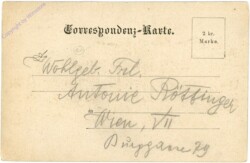 Correspondenz-Karte.
2 kr.
Marke.
Wohlgeb. Frl.
Antonie Röttinger
Wien, VII
Burggasse 29